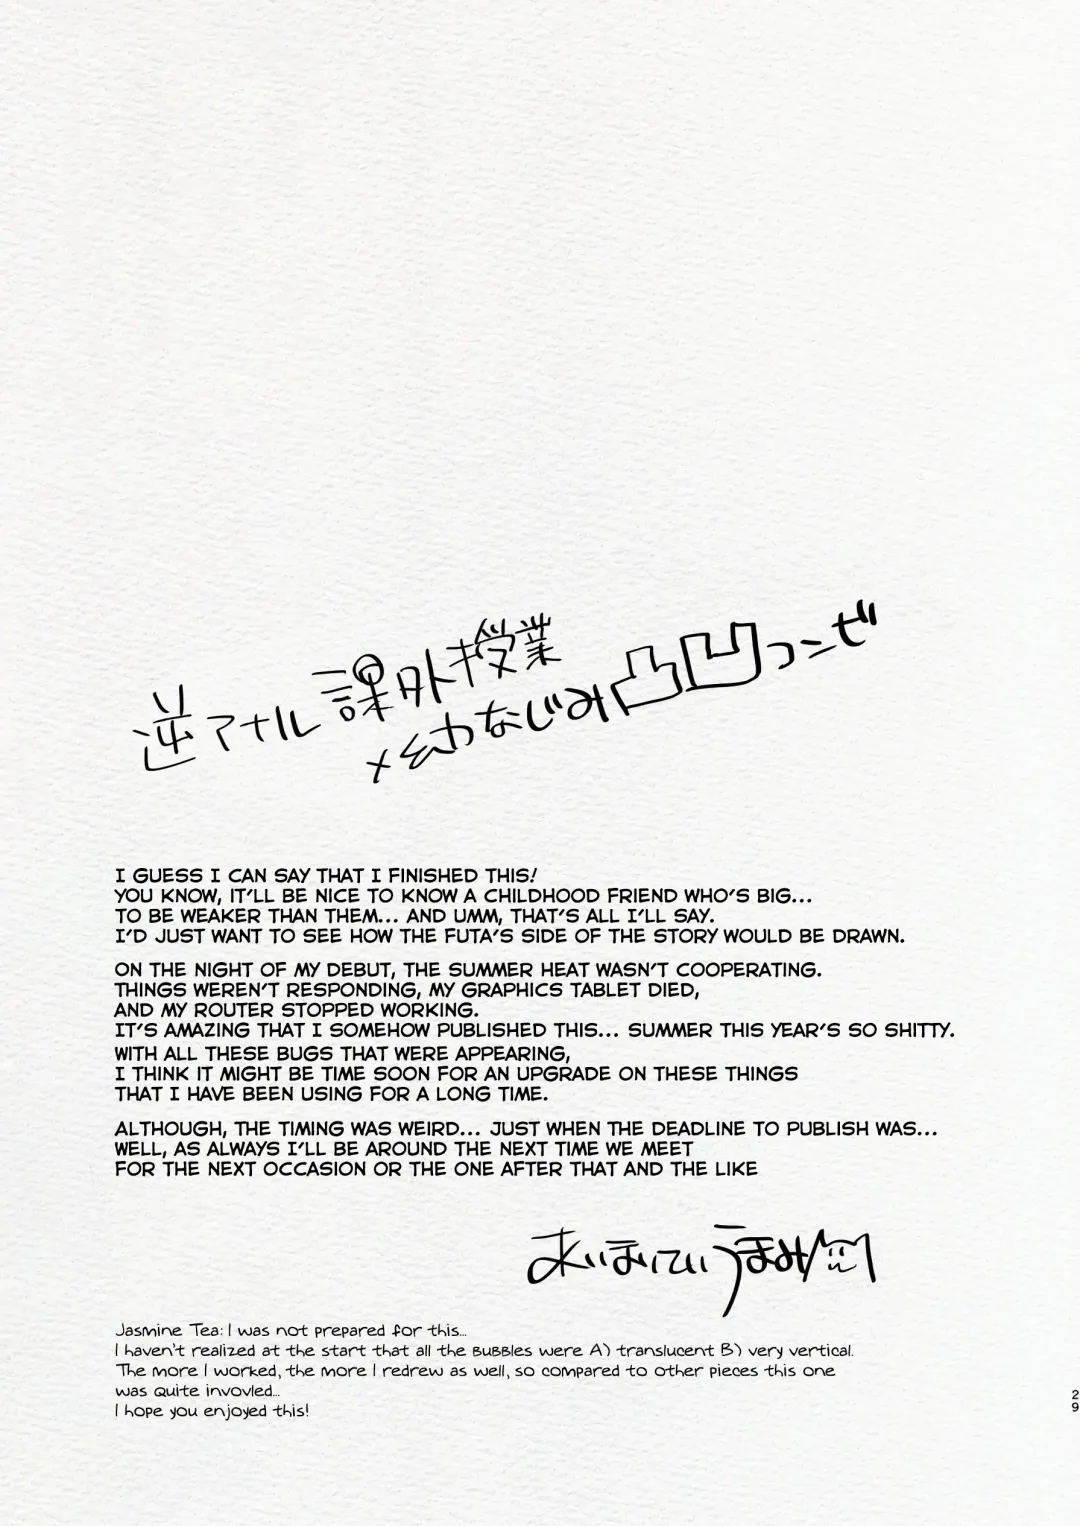 逆アナル課外授業
×幼なじみ凸凹っこぜ
I GUESS I CAN SAY THAT I FINISHED THIS!
YOU KNOW, IT'LL BE NICE TO KNOW A CHILDHOOD FRIEND WHO'S BIG...
TO BE WEAKER THAN THEM... AND UMM, THAT'S ALL I'LL SAY.
I'D JUST WANT TO SEE HOW THE FUTA'S SIDE OF THE STORY WOULD BE DRAWN.
ON THE NIGHT OF MY DEBUT, THE SUMMER HEAT WASN'T COOPERATING.
THINGS WEREN'T RESPONDING, MY GRAPHICS TABLET DIED,
AND MY ROUTER STOPPED WORKING.
IT'S AMAZING THAT I SOMEHOW PUBLISHED THIS... SUMMER THIS YEAR'S SO SHITTY.
WITH ALL THESE BUGS THAT WERE APPEARING,
I THINK IT MIGHT BE TIME SOON FOR AN UPGRADE ON THESE THINGS
THAT I HAVE BEEN USING FOR A LONG TIME.
ALTHOUGH, THE TIMING WAS WEIRD... JUST WHEN THE DEADLINE TO PUBLISH WAS...
WELL, AS ALWAYS I'LL BE AROUND THE NEXT TIME WE MEET
FOR THE NEXT OCCASION OR THE ONE AFTER THAT AND THE LIKE
うまみ
Jasmine Tea: I was not prepared for this...
I haven't realized at the start that all the bubbles were A) translucent B) very vertical.
The more I worked, the more I redrew as well, so compared to other pieces this one
was quite invovled...
I hope you enjoyed this!
29